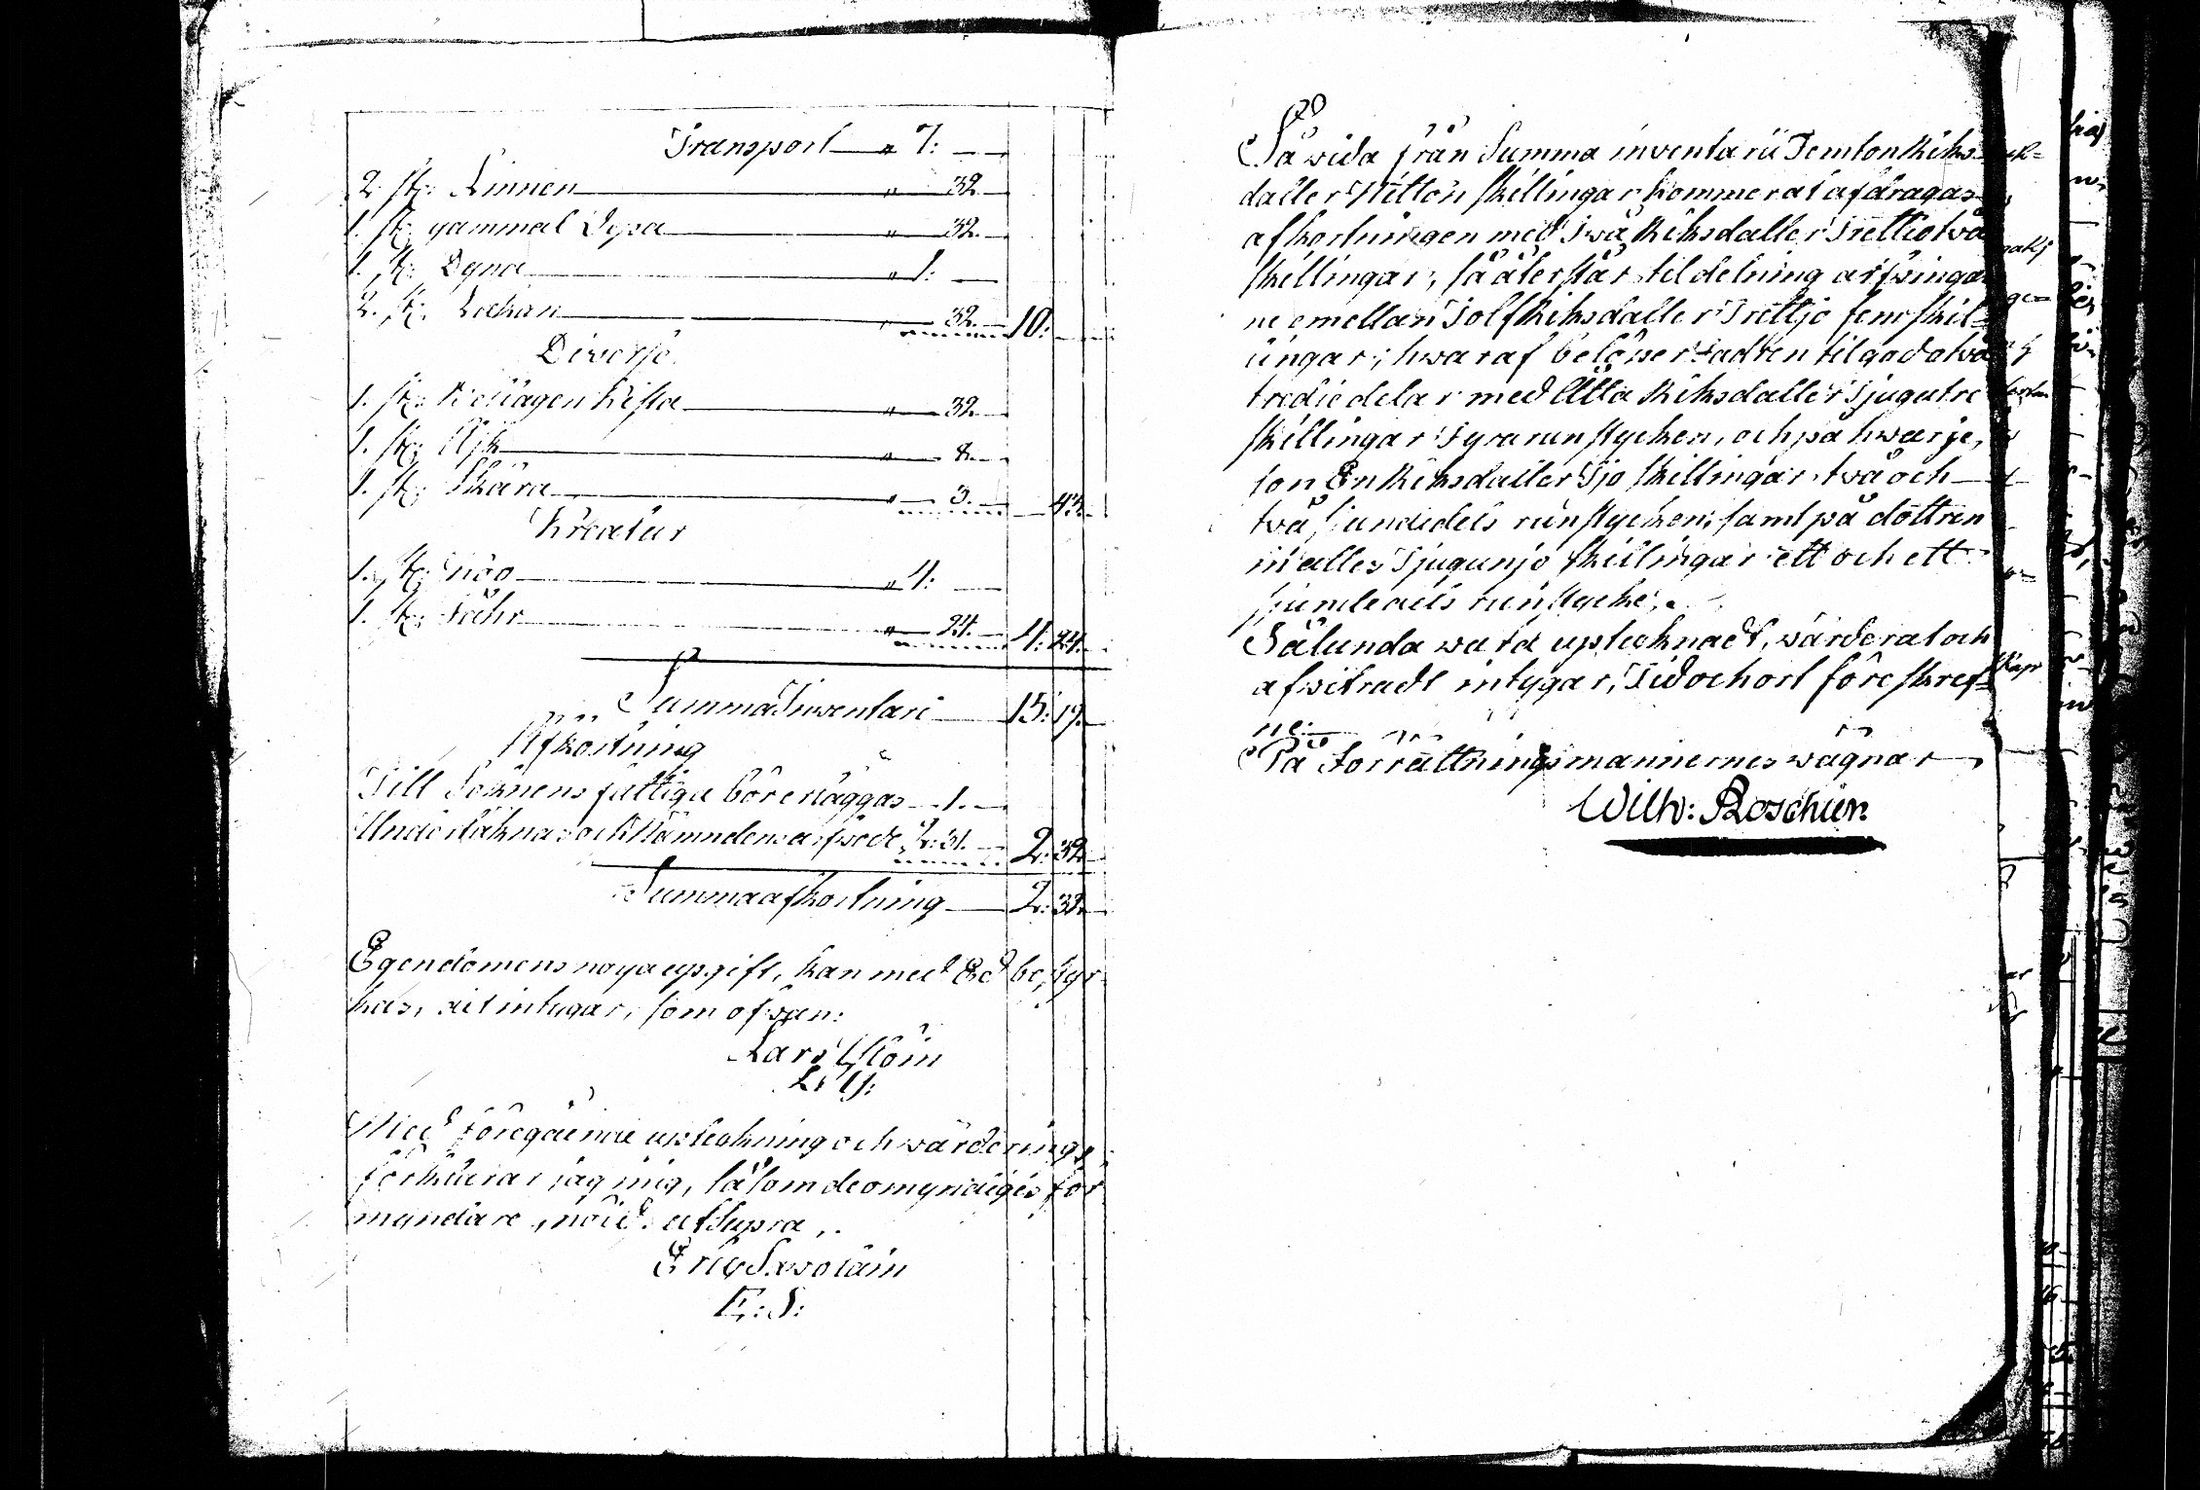 Transport " 7: —
2. st: Linnen " — 32.
1. st: gammal Rya " — 32.
1. st: Dyna " 1: —
2. st: Lakan " — 32. 10: —
Diverse
1. st: Beslagen Kista " — 32.
1. st: Ask " — 8.
1. st: Skära " — 3. — 43.
Kreatur
1. st: " 4: —
1. st: Fåhr " — 24. 4: 24.
Summa Inventarii 15: 19.
Afkortning
Till Soknens fattiga bör erläggas — 1.
Underteknas och Nämndens arfvode " 2: 31. 2: 32
Summa afkortning 2: 32.
Egendomens noga upgift, kan med Ed bestyr-
kas, ait intygar, som ofvan:
Lars
L: M:
Med föregående upteckning och wärdering,
förklarar jag mig, såsom de omyndiges för
myndare, nöjd. ut Supra,.
Eric
E: S:
Så wida från Summa inventarii Femton Riks-
daller Nitton skillingar kommer at afdragas
afkortningen med Twå Riksdaller Trettiotwå
skillingar, så återstår til delning arfwingar
ne emellan Tolf Riksdaller Trettjo fem skil-
lingar; hwaraf belöper Fadren til godo twå
tredie delar med Åtta Riksdaller Tjugutre
skillingar Fyra runstycken, och på hwarje,
son En Riksdaller Tjo skillingar två och
två sjundedels runstycken, samt på dottren
inalles Tjugunjo skillingar ett och ett
sjundedels runstycke,.
Sålunda wara uptecknadt, wärderat och
afwitradt intygar, Tid och ort föreskref-
ne.
På Förrättningsmannernes wägnar
Wilh: Roschier.